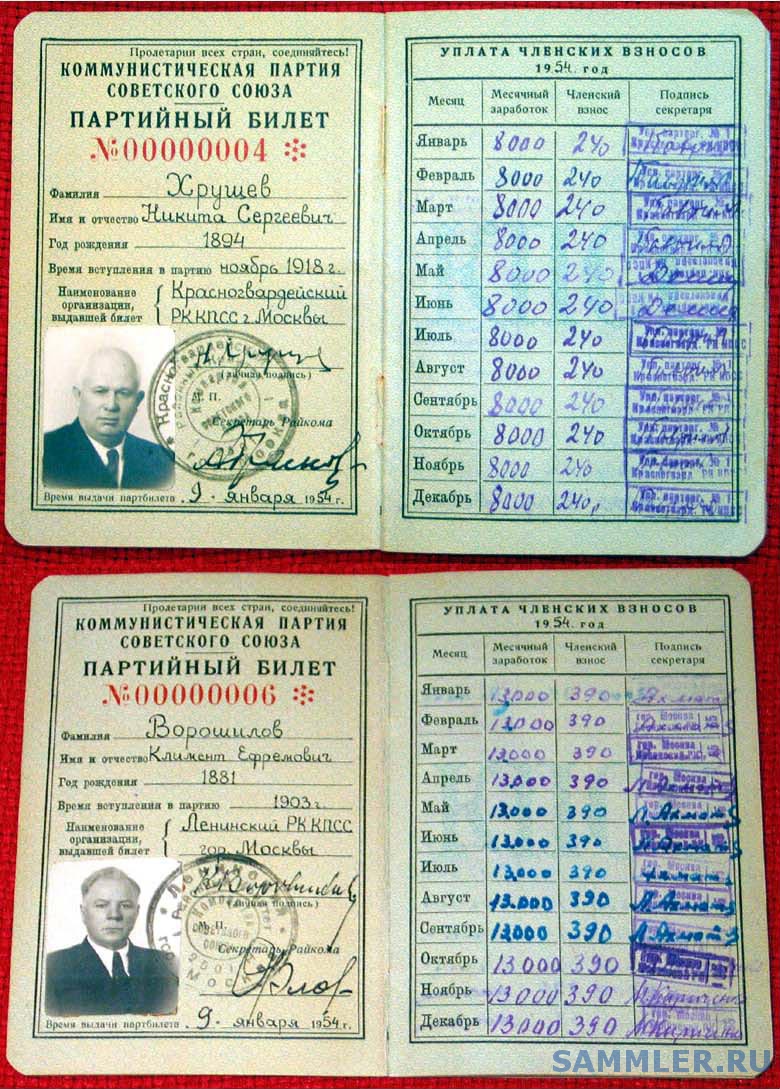 Пролетарии всех стран, соединяйтесь!
КОММУНИСТИЧЕСКАЯ ПАРТИЯ
СОВЕТСКОГО СОЮЗА
ПАРТИЙНЫЙ БИЛЕТ
№00000004
Фамилия Хрущев
Имя и отчество Никита Сергеевич
Год рождения 1894
Время вступления в партию ноябрь 1918 г.
Наименование организации, выдавшей билет
Красногвардейский
РК КПСС г. Москвы
(личная подпись)
М. П.
Секретарь Райкома
Время выдачи партбилета 9 января 1954 г.
УПЛАТА ЧЛЕНСКИХ ВЗНОСОВ
1954 год
Месяц Месячный заработок Членский взнос Подпись секретаря
Январь 8000 240
Февраль 8000 240
Март 8000 240
Апрель 8000 240
Май 8000 240
Июнь 8000 240
Июль 8000 240
Август 8000 240
Сентябрь 8000 240
Октябрь 8000 240
Ноябрь 8000 240
Декабрь 8000 240
Пролетарии всех стран, соединяйтесь!
КОММУНИСТИЧЕСКАЯ ПАРТИЯ
СОВЕТСКОГО СОЮЗА
ПАРТИЙНЫЙ БИЛЕТ
№00000006
Фамилия Ворошилов
Имя и отчество Климент Ефремович
Год рождения 1881
Время вступления в партию 1903 г.
Наименование организации, выдавшей билет
Ленинский РК КПСС
гор. Москвы
(личная подпись)
М. П.
Секретарь Райкома
Время выдачи партбилета 9 января 1954 г.
УПЛАТА ЧЛЕНСКИХ ВЗНОСОВ
1954 год
Месяц Месячный заработок Членский взнос Подпись секретаря
Январь 13000 390
Февраль 13000 390
Март 13000 390
Апрель 13000 390
Май 13000 390
Июнь 13000 390
Июль 13000 390
Август 13000 390
Сентябрь 13000 390
Октябрь 13000 390
Ноябрь 13000 390
Декабрь 13000 390
SAMMLER.RU